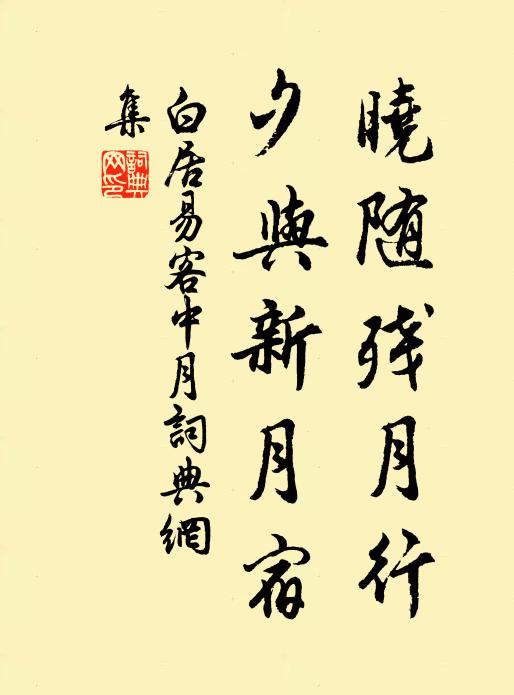 曉随残月行
夕與新月宿
白居易客中月詞典網
集
詞典
网印